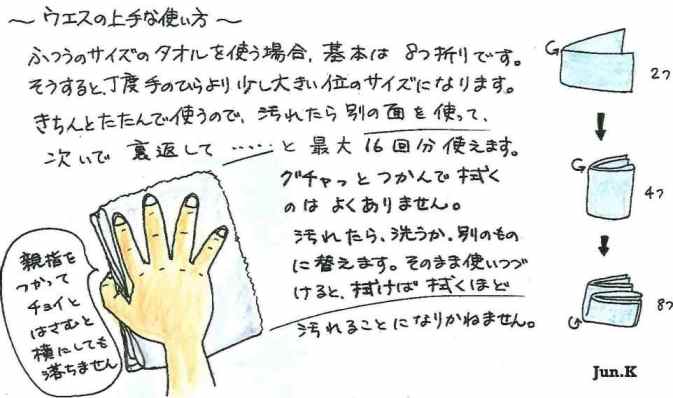 ～ウエスの上手な使い方～
ふつうのサイズのタオルを使う場合、基本は 8つ折りです。
そうすると、丁度手のひらより少し大きい位のサイズになります。
きちんとたたんで使うので、汚れたら別の面を使って、
次いで 裏返して ‥‥‥ と 最大 16回分 使えます。
グチャっとつかんで拭く
のは よくありません。
汚れたら、洗うか、別のもの
に替えます。そのまま使いつづ
けると、拭けば 拭くほど
汚れることになりかねません。
親指を
つかって
チョイと
はさむと
横にしても
落ちません
2つ
4つ
8つ
Jun.K